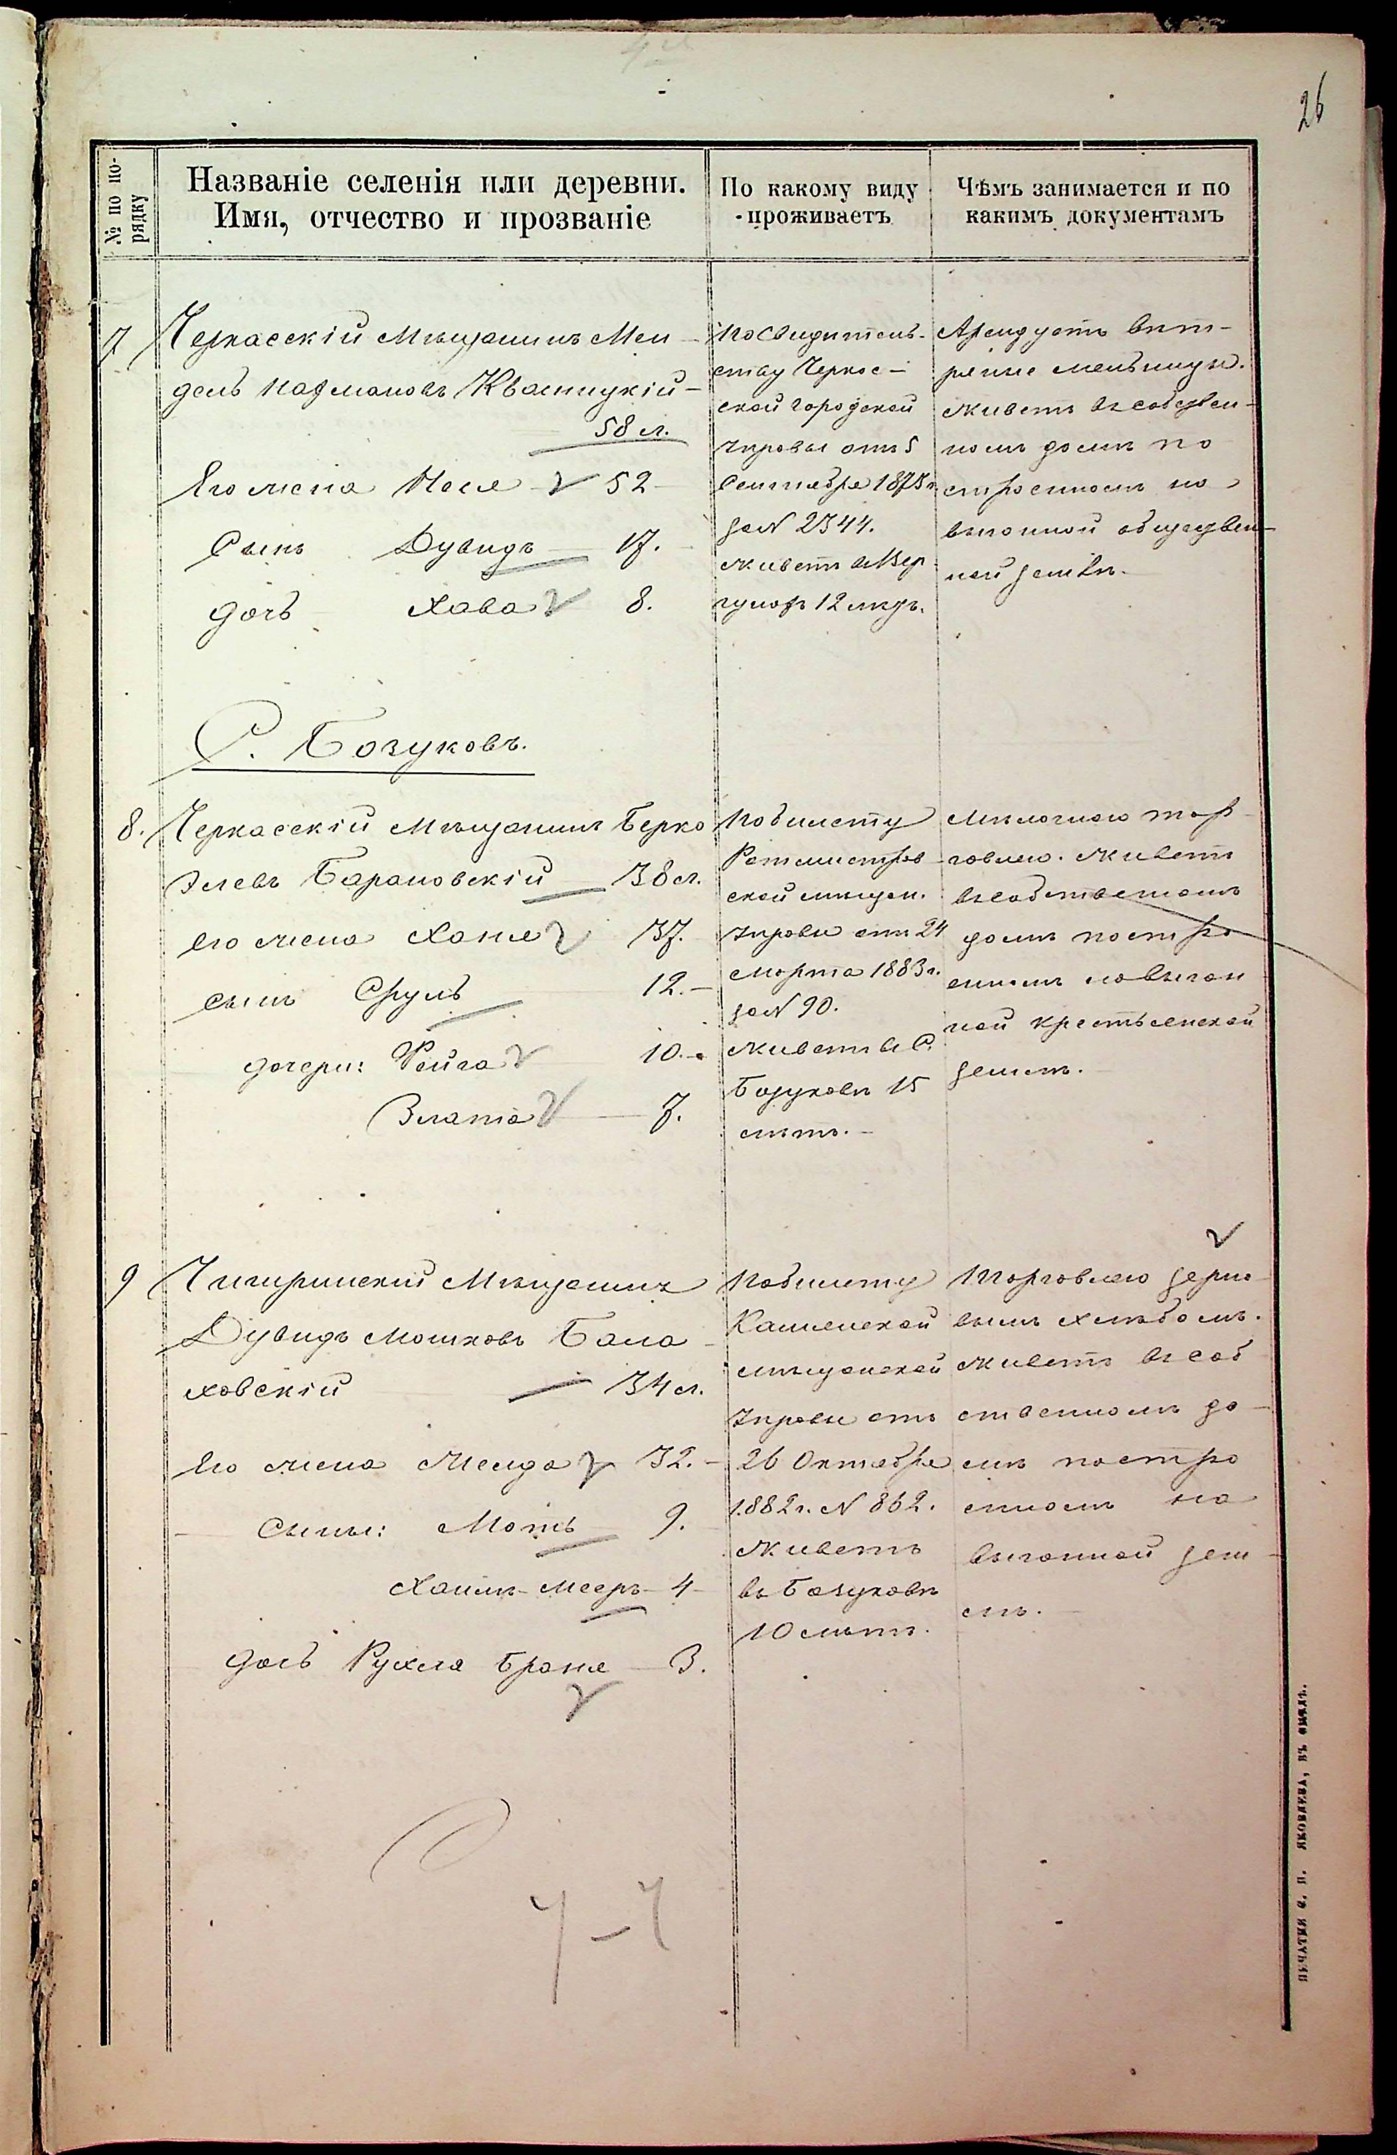 26
№ по по-
рядку
Названіе селенія или деревни.
Имя, отчество и прозваніе
По какому виду
проживаетъ
Чѣмъ занимается и по
какимъ документамъ
7
Черкасскій Мѣщанинъ Мен-
дель Нахмановъ Квасницкій-
58 л.
Его жена Нося 52
Сынъ Дувидъ 17.
дочь Хава 8.
По свидѣтель-
ству Черкас-
ской городской
Управы отъ 5
Сентября 187 г.
за N 2344.
Живетъ въ Вер
гунах 12 лѣтъ.
Арендуетъ вѣт-
ряные мельницы.
Живетъ въ собствен-
номъ домѣ по
строенномъ на
выгонной обществен-
ной землѣ.
С. Бозуковъ.
8. Черкасскій Мѣщанинъ Берко
Элевъ Барановскій 38 л.
его жена Ханя 37.
сынъ Сруль 12.
дочери: Фейга 10.
Злата 7.
По билету
Ротмистров
ской мѣщан.
Управы отъ 24
Марта 1883 г.
за N 90.
Живетъ въ С.
Бозуковѣ 15
лѣтъ.
Мѣлочною тор
говлею. Живетъ
въ собственномъ
домѣ постро
енномъ на выгон
ной крестьянской
землѣ.
9 Чигиринскій Мѣщанинъ
Дувидъ Мошковъ Бала
ховскій 34 л.
Его жена Менда 32.
Сыны: Моть 9.
Хаимъ-Мееръ 4
Дочь Рухля Броня 3.
По билету
Каменской
мѣщанской
Управы отъ
26 Октября
1882 г. N 862.
Живетъ
въ Бозуковѣ
10 лѣтъ.
Торговлею зерно
вымъ хлѣбомъ.
Живетъ въ соб
ственномъ до-
мѣ постро
енномъ на
выгонной зем-
лѣ.
4-4
ПЕЧАТНЯ С. П. ЯКОВЛЕВА, ВЪ СМѢЛѢ.